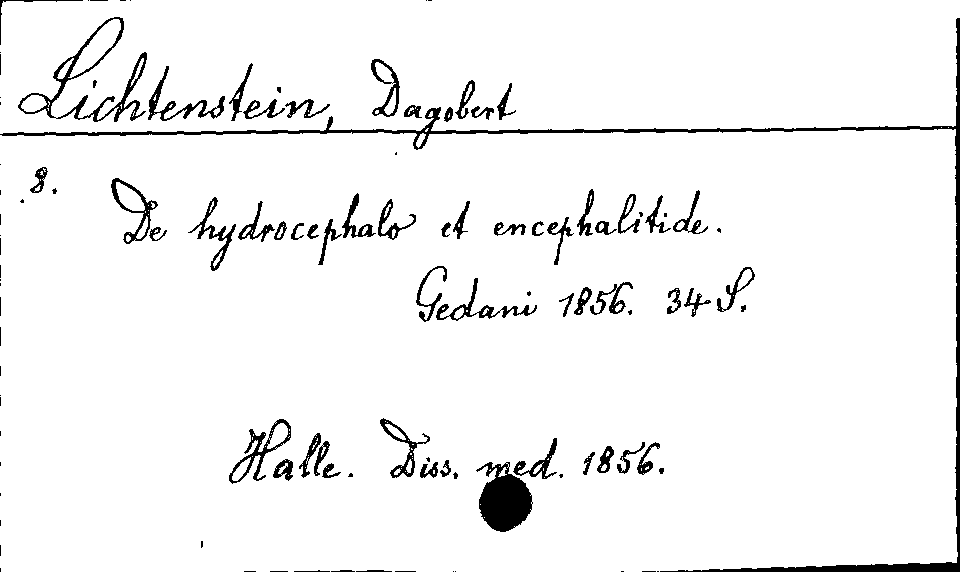 Lichtenstein, Dagobert
8.
De hydrocephalo et encephalitide.
Gedani 1856. 34 S.
Halle. Diss. med. 1856.